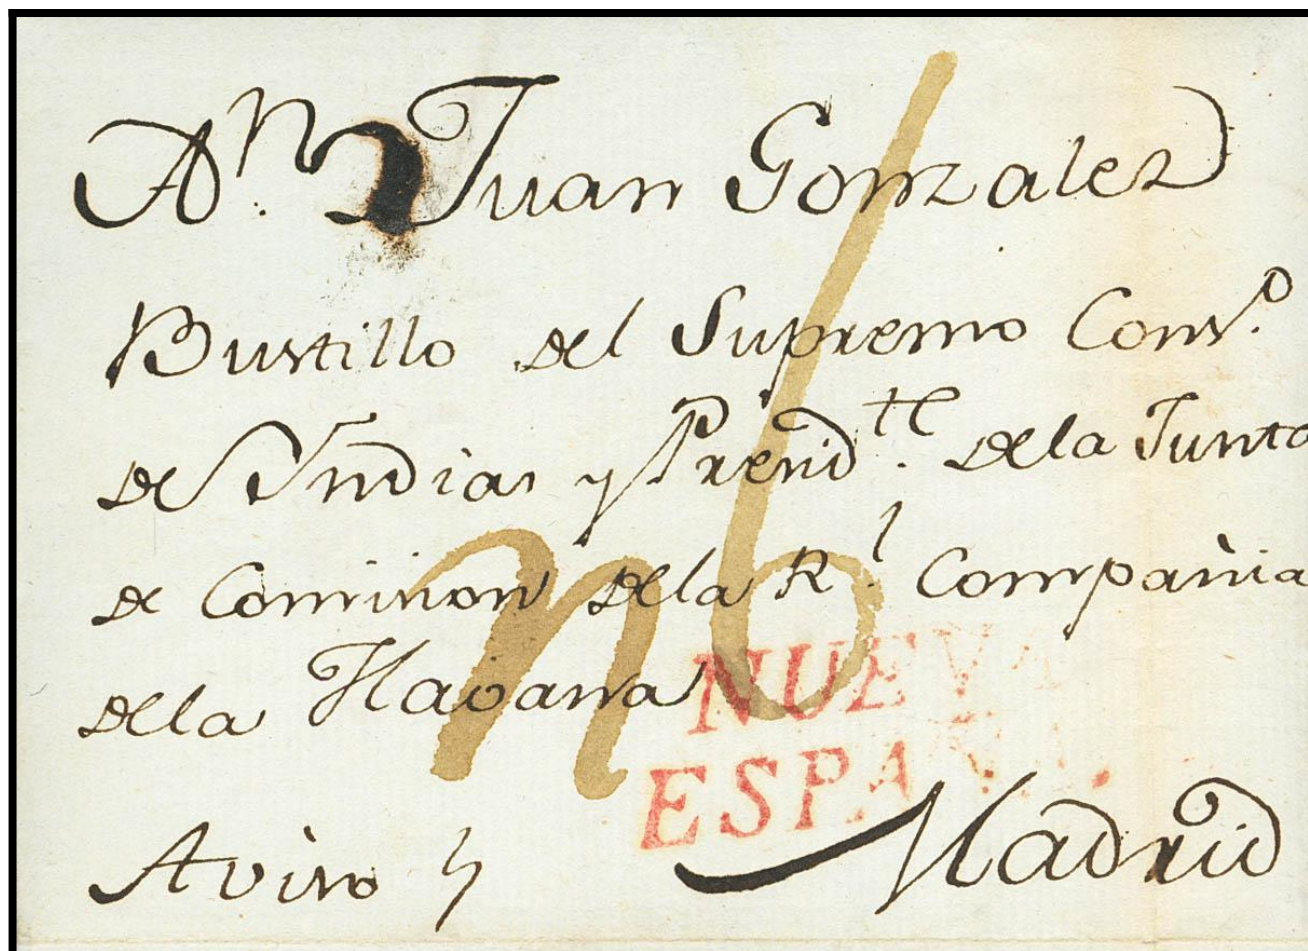 A n. D Juan Gonzalez
Bustillo del Supremo Cons.o
de Yndias y Presid.te dela Junta
de Comision dela R.l Compañia
dela Havana
NUEVA
ESPAÑA.
Madrid